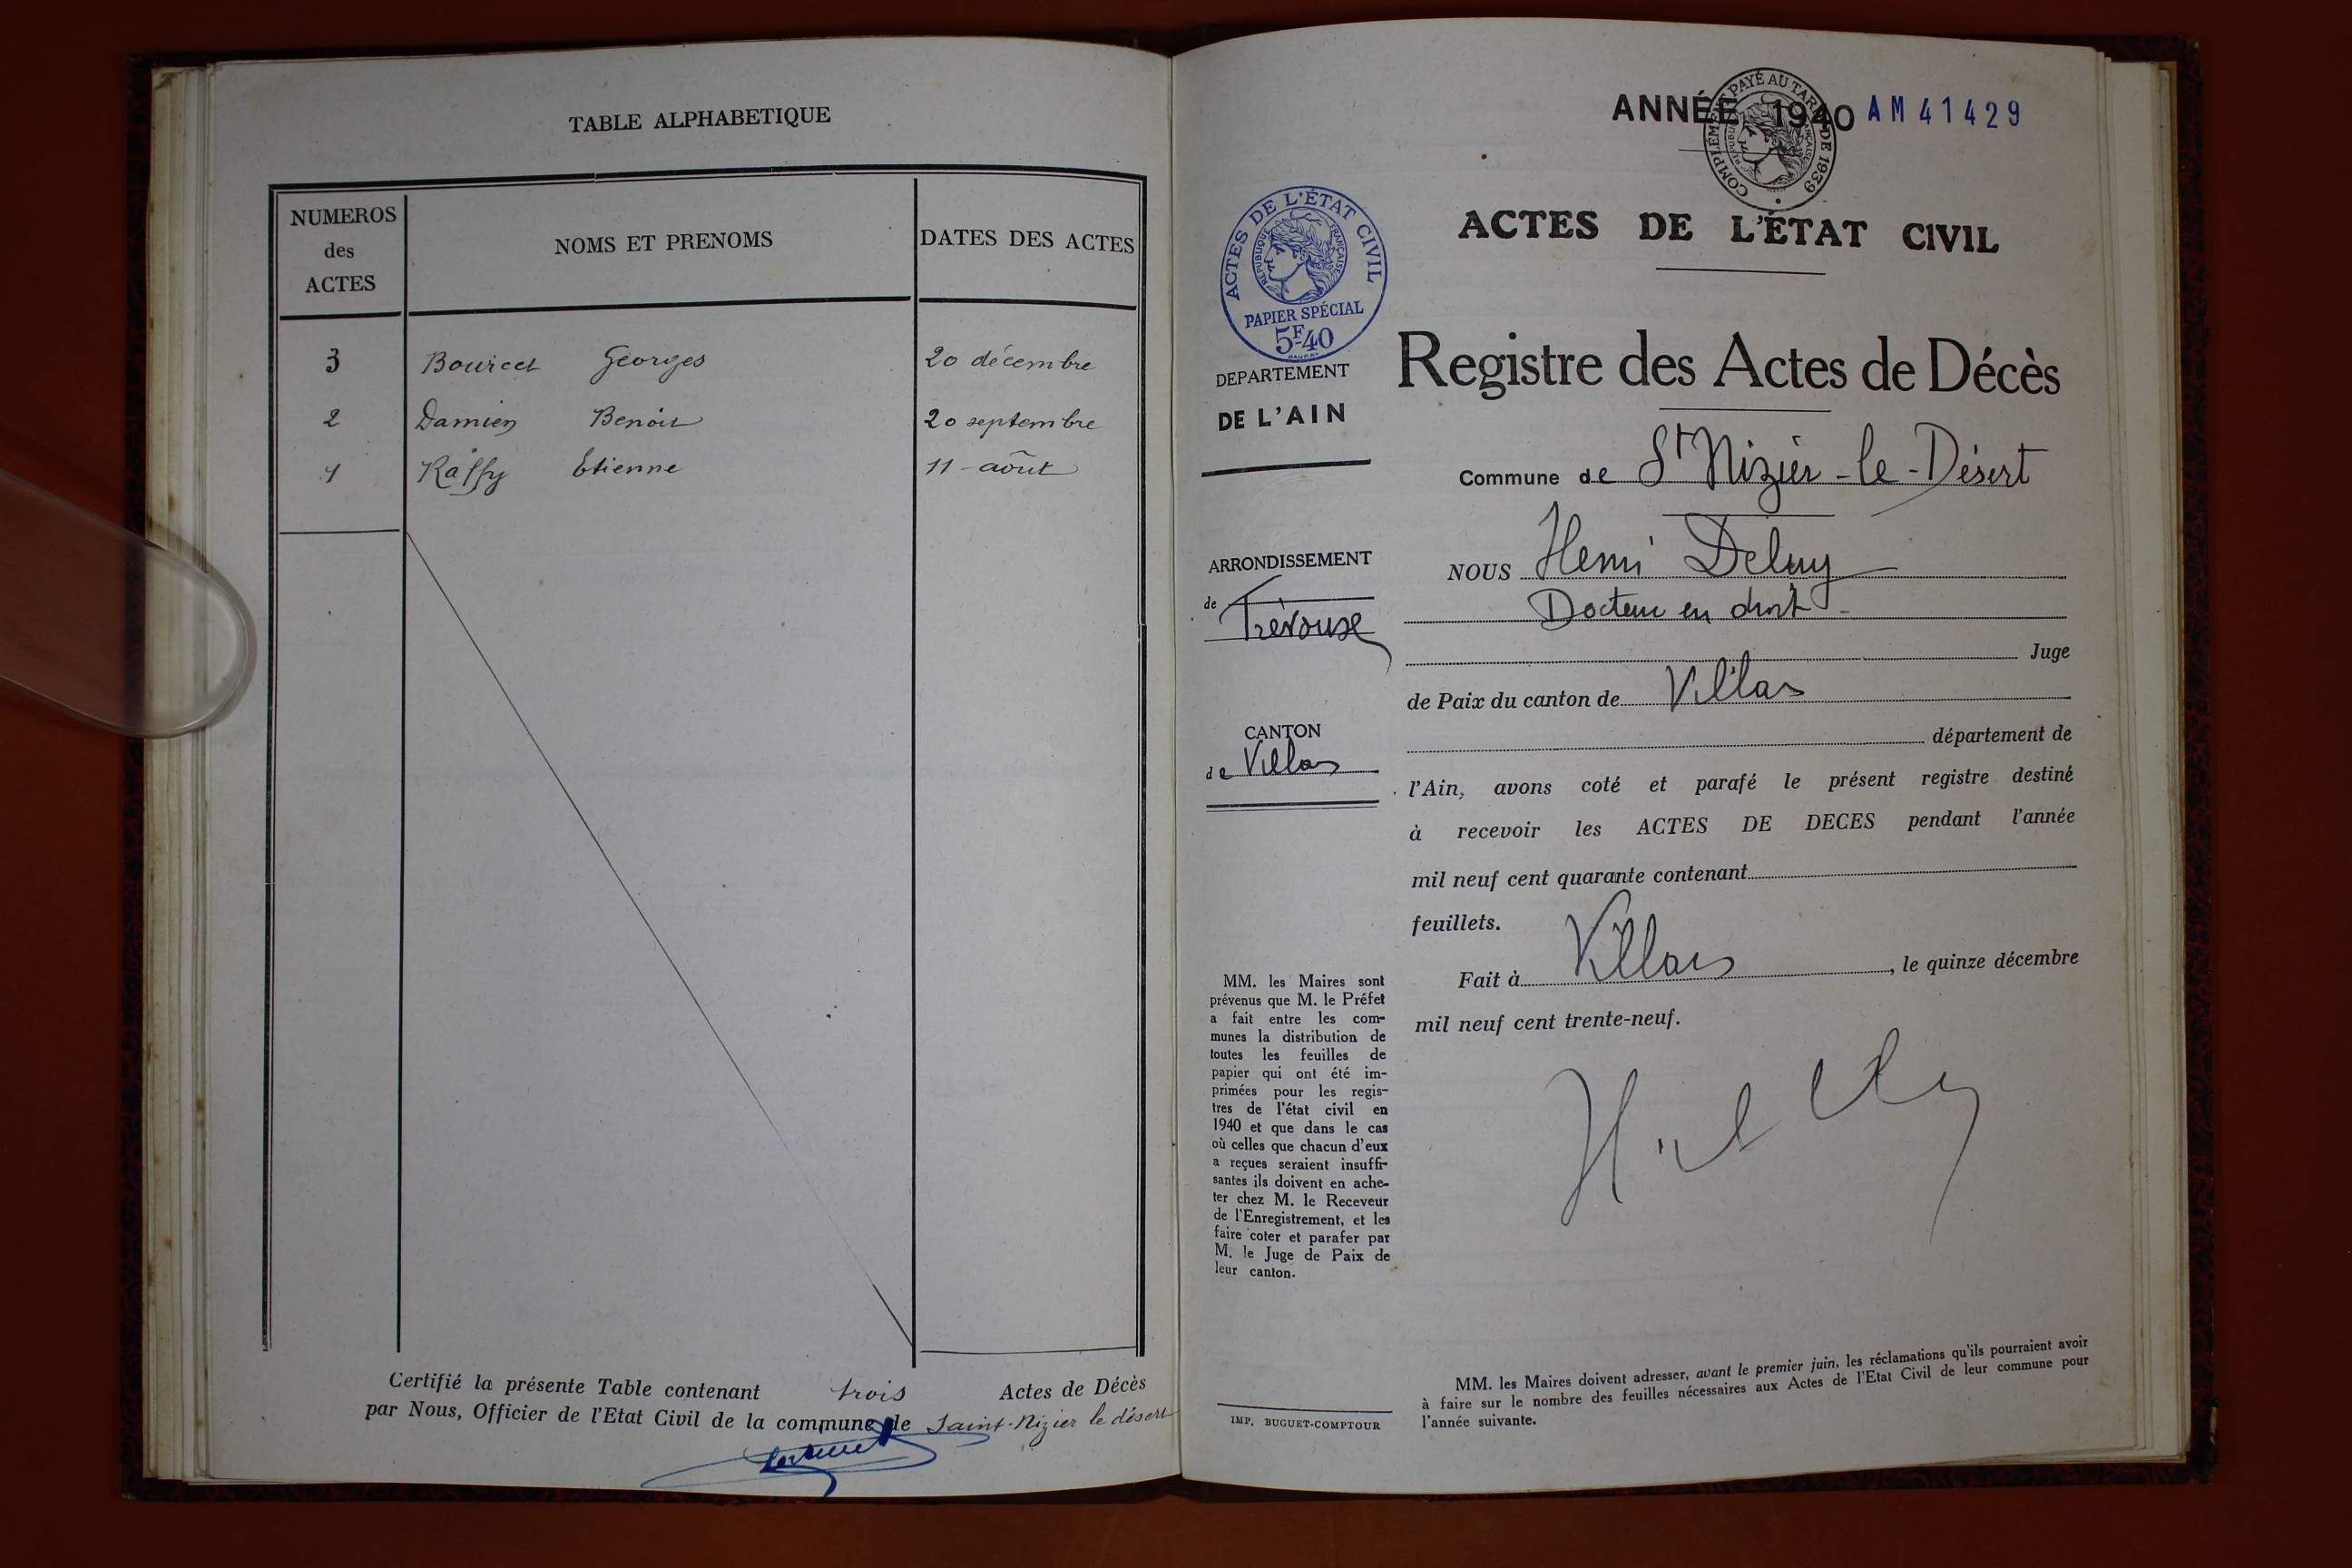 TABLE ALPHABETIQUE
NUMEROS
des
ACTES
NOMS ET PRENOMS
DATES DES ACTES
3 Bourcet Georges 20 décembre
2 Damien Benoit 20 septembre
1 Raffy Etienne 11 - août
Certifié la présente Table contenant trois Actes de Décès
par Nous, Officier de l'Etat Civil de la commune de Saint-Nizier le désert
ANNÉE 1940 AM 41429
COMPLÉMENT PAYÉ AU TARIF DE 1939
RÉPUBLIQUE FRANÇAISE
ACTES DE L'ÉTAT CIVIL
RÉPUBLIQUE FRANÇAISE
PAPIER SPÉCIAL
5F.40
DEPARTEMENT
DE L'AIN
ARRONDISSEMENT
de
Trévoux
CANTON
de Villars
MM. les Maires sont
prévenus que M. le Préfet
a fait entre les com-
munes la distribution de
toutes les feuilles de
papier qui ont été im-
primées pour les regis-
tres de l'état civil en
1940 et que dans le cas
où celles que chacun d'eux
a reçues seraient insuffi-
santes ils doivent en ache-
ter chez M. le Receveur
de l'Enregistrement, et les
faire coter et parafer par
M. le Juge de Paix de
leur canton.
IMP. BUGUET-COMPTOUR
ACTES DE L'ÉTAT CIVIL
Registre des Actes de Décès
Commune de St Nizier-le-Désert
NOUS Henri Deluy
Docteur en droit -
Juge
de Paix du canton de Villars
département de
l'Ain, avons coté et parafé le présent registre destiné
à recevoir les ACTES DE DECES pendant l'année
mil neuf cent quarante contenant
feuillets.
Fait à Villars, le quinze décembre
mil neuf cent trente-neuf.
MM. les Maires doivent adresser, avant le premier juin, les réclamations qu'ils pourraient avoir
à faire sur le nombre des feuilles nécessaires aux Actes de l'Etat Civil de leur commune pour
l'année suivante.